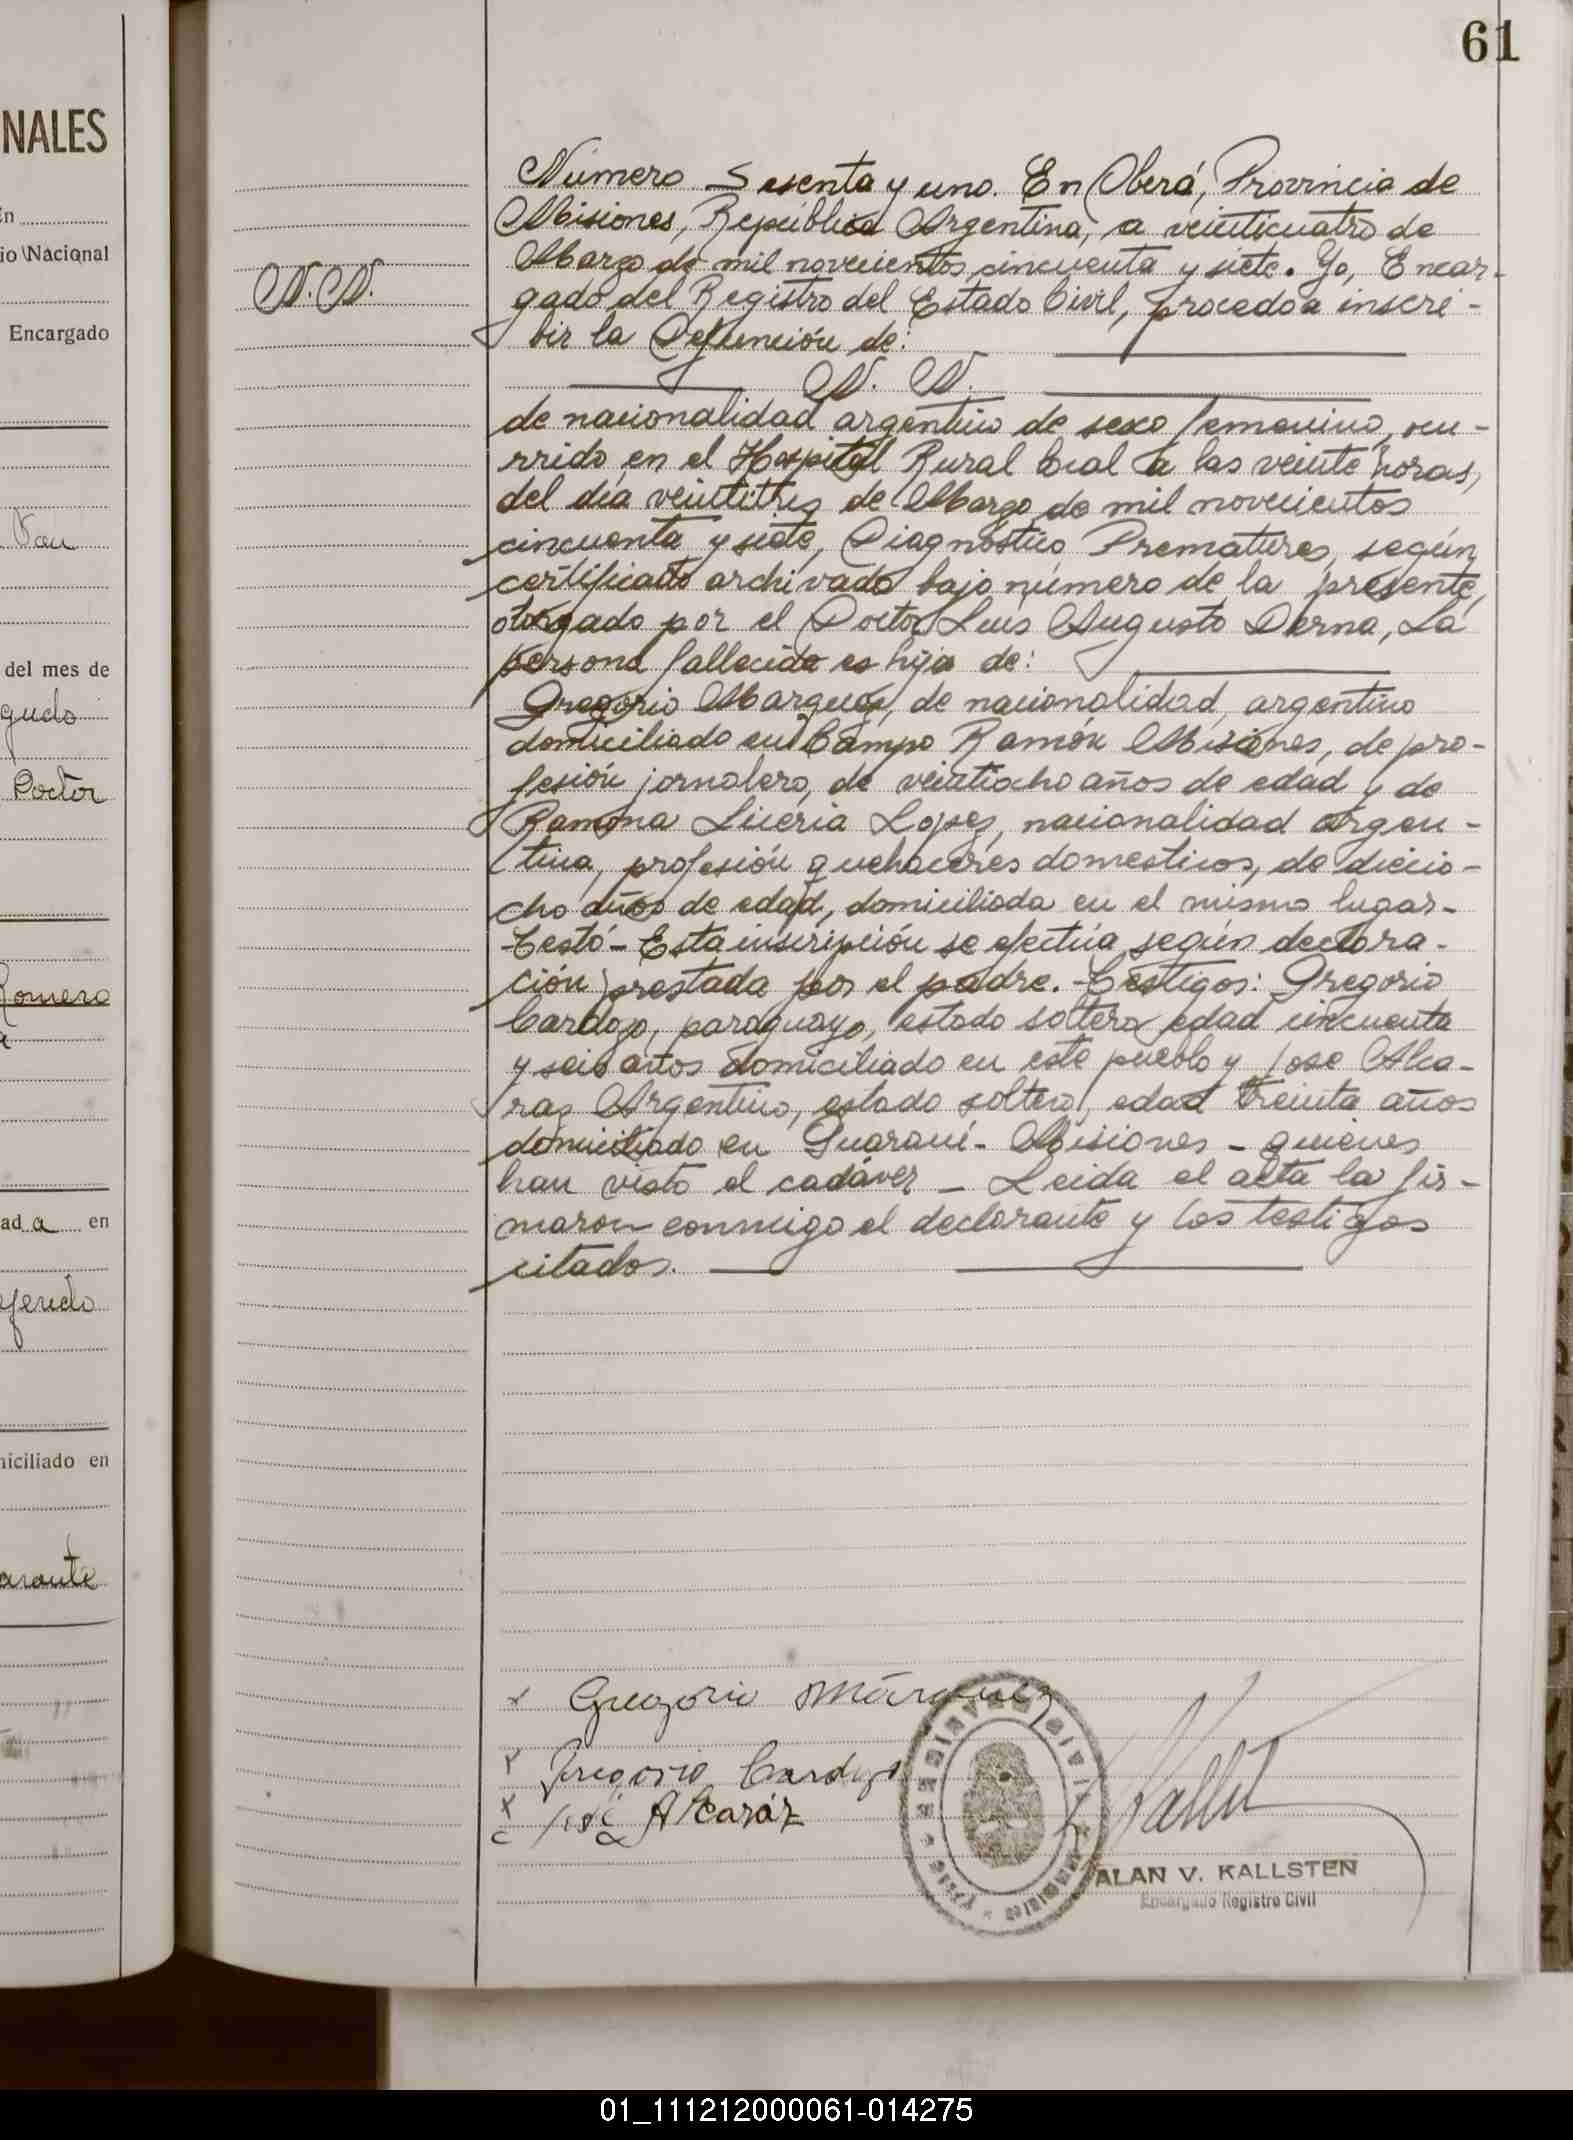 NALES
En
io Nacional
Encargado
del mes de
gudo
Doctor
Romero
ad a en
niciliado en
61
N. N.
Número Sesenta y uno. En Oberá, Provincia de
Misiones, República Argentina, a veinticuatro de
Marzo de mil novecientos cincuenta y siete. Yo, Encar-
gado del Registro del Estado Civil, procedo a inscri-
bir la Defunción de:
N. N.
de nacionalidad argentino de sexo femenino, ocu-
rrido en el Hospital Rural Local a las veinte horas,
del día veintitres de Marzo de mil novecientos
cincuenta y siete, Diagnóstico Prematures, según
certificado archivado bajo número de la presente,
otorgado por el Doctor Luis Augusto Derna, La
persona fallecida es hija de:
Gregorio Marquez, de nacionalidad argentino
domiciliado en Campo Ramón Misiones, de pro-
fesión jornalero, de veintiocho años de edad y de
Ramona Luceria Lopez, nacionalidad argen-
tina, profesión quehaceres domesticos, de diecio-
cho años de edad, domiciliada en el mismo lugar-
Testó- Esta inscripción se efectúa según declara-
ción prestada por el padre. - Testigos: Gregorio
Cardozo, paraguayo, estado soltero edad cincuenta
y seis años domiciliado en este pueblo y Jose Alca-
raz Argentino, estado soltero, edad treinta años
domiciliado en Guaraní - Misiones - quienes
han visto el cadáver - Leida el acta la fir-
maron conmigo el declarante y los testigos
citados.
x Gregorio Márquez
x Gregorio Cardozo
x José Alcaráz
Kallst
ALAN V. KALLSTEN
Encargado Registro Civil
01_111212000061-014275